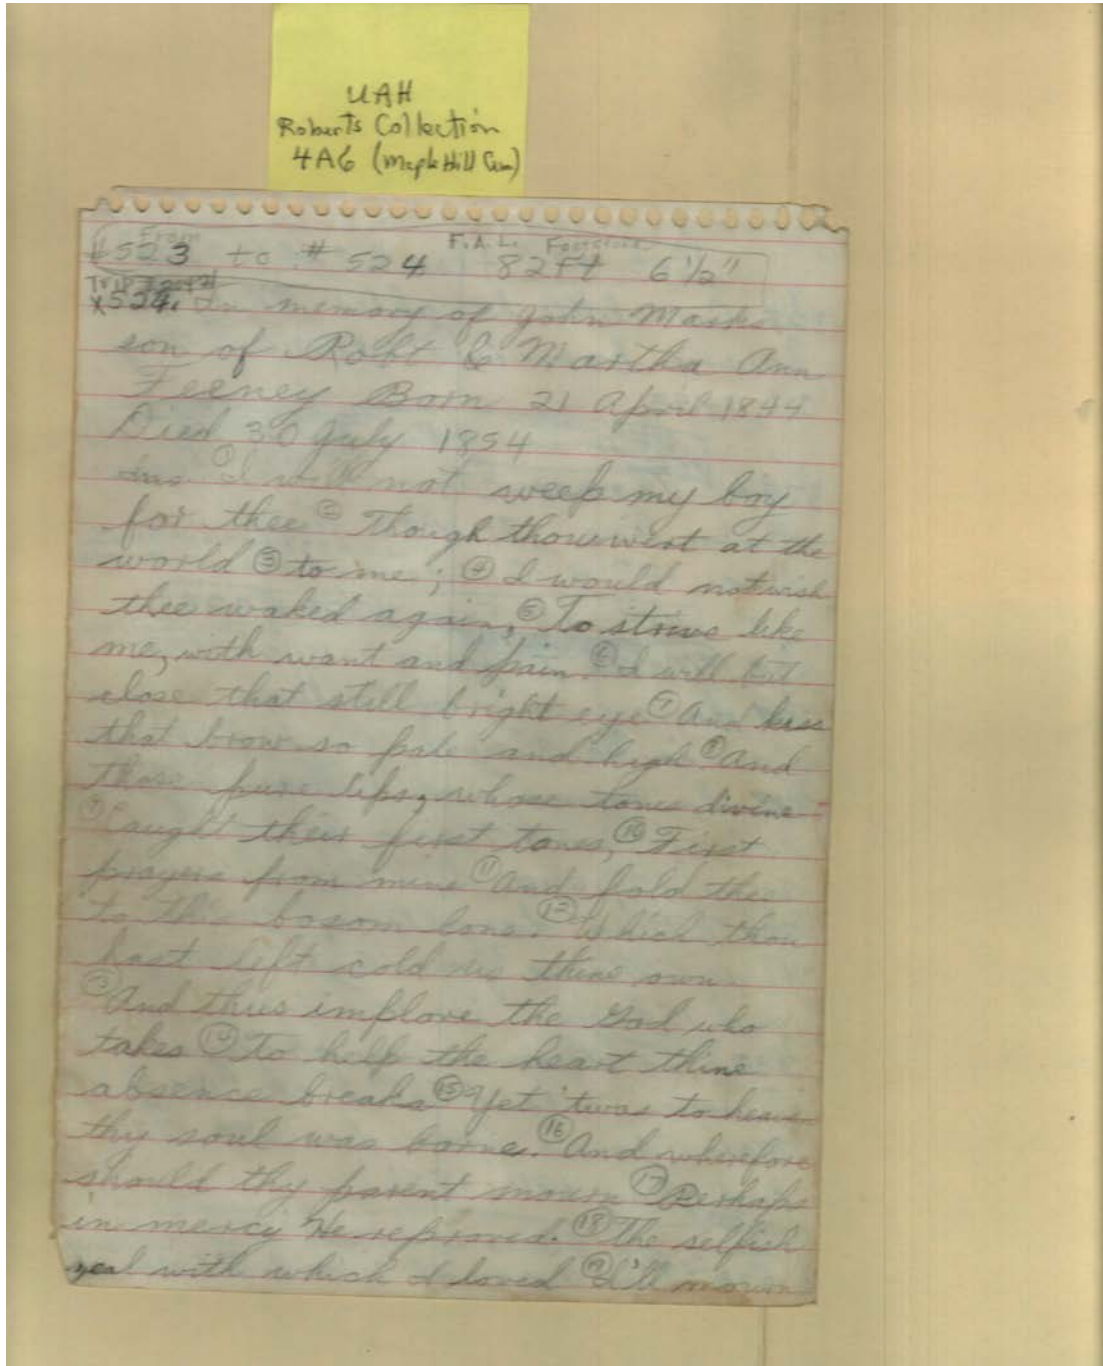 UAH
Roberts Collection
4A6 (Maple Hill Cem)
From F.A.L. Footstone
#523 to # 524 82ft 6 1/2"
X524. In memory of John Mark
son of Robt & Martha Ann
Feeney Born 21 April 1844
Died 30 July 1854
① I will not weep my boy
for thee ② Though thou wert at the
world ③ to me; ④ I would not wish
thee waked again, ⑤ To strive like
me, with want and pain. ⑥ I will but
close that still bright eye ⑦ And kiss
that brow so pale and high ⑧ And
those pure lips, whose tones divine
⑨ Caught their first tones, ⑩ First
prayers from mine ⑪ And fold thee
to this bosom lone. ⑫ Which thou
hast left cold as thine own.
⑬ And thus implore the God who
takes ⑭ To help the heart thine
absence breaks ⑮ Yet 'twas to heaven
thy soul was borne. ⑯ And wherefore
should thy parent mourn ⑰ Perhaps
in mercy He reproved. ⑱ The selfish
zeal with which I loved ⑲ I'll mourn